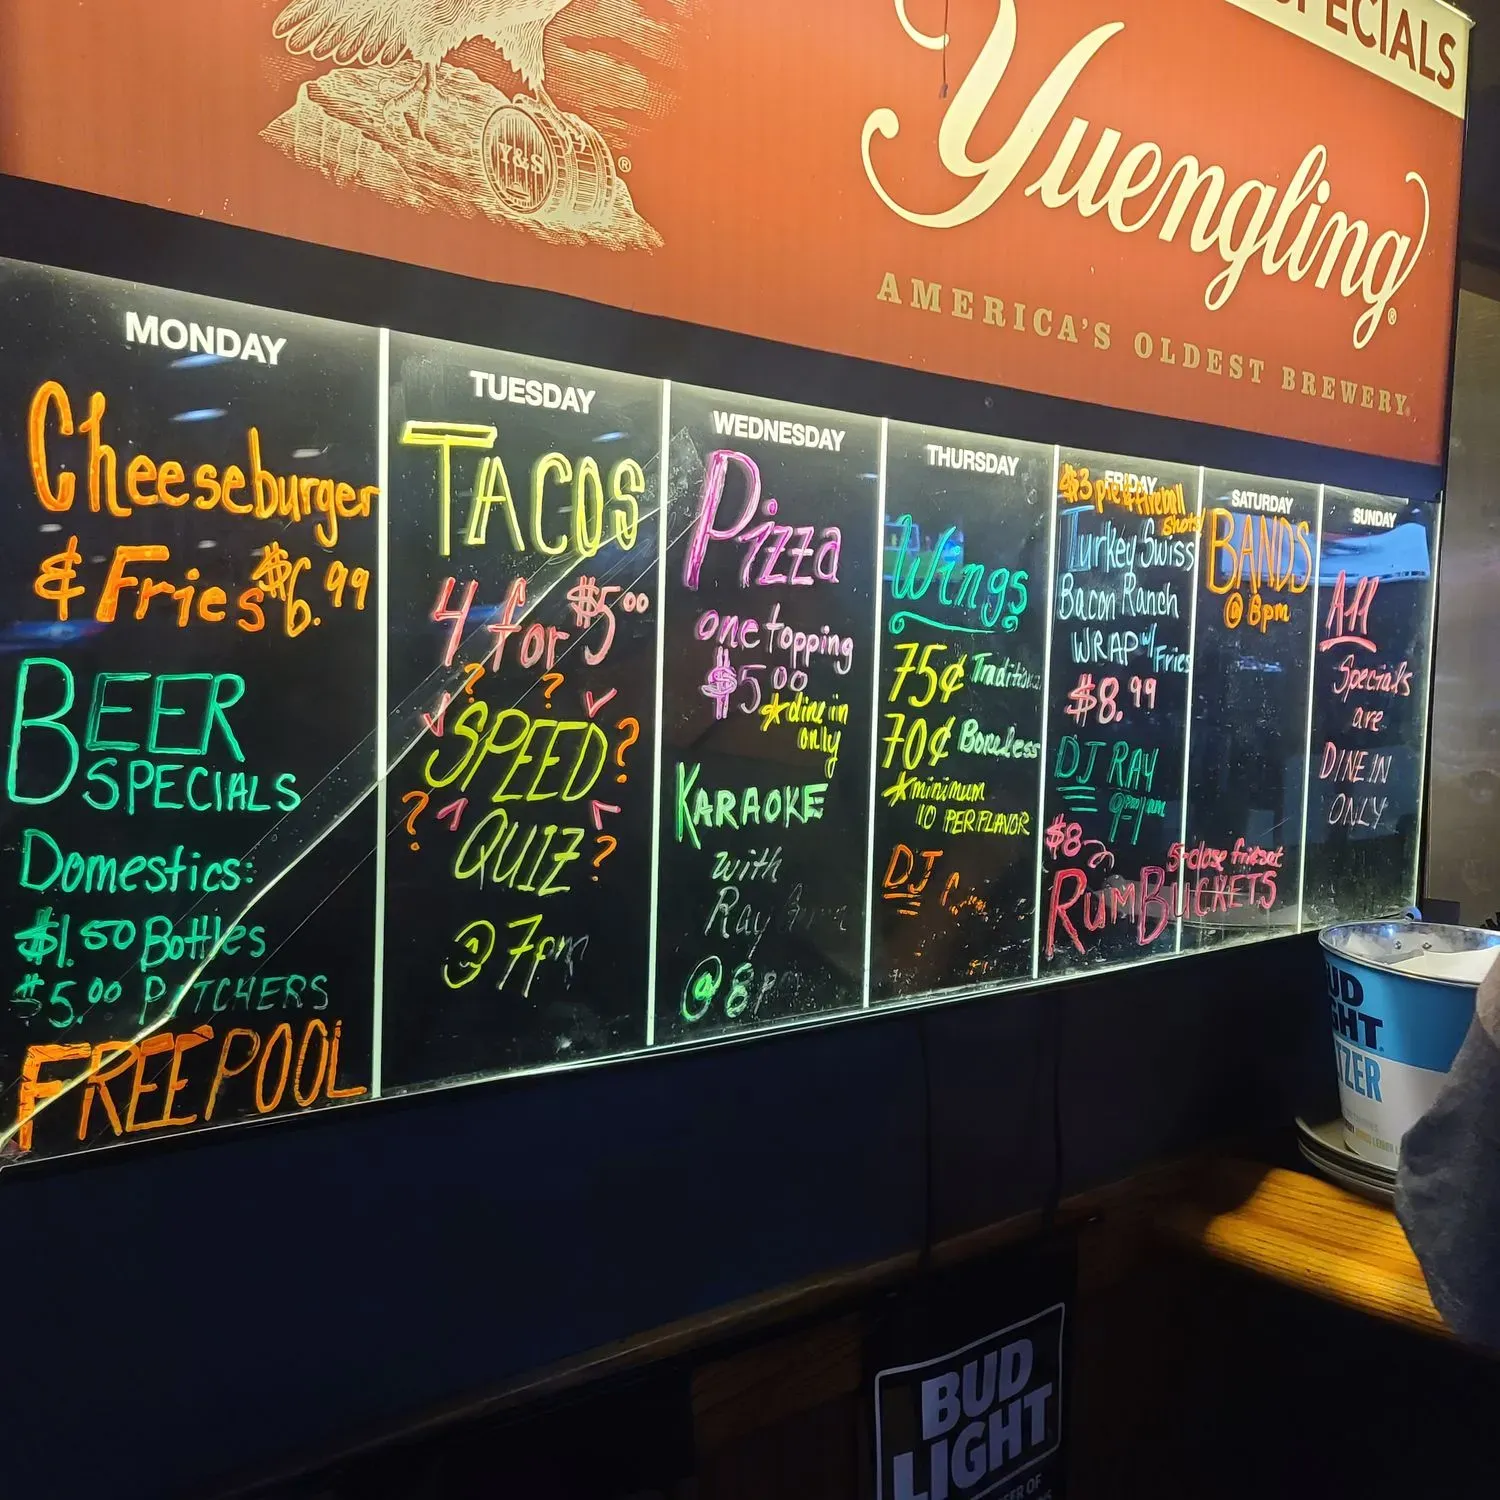 SPECIALS
Y&S
Yuengling
AMERICA'S OLDEST BREWERY
MONDAY
Cheeseburger
& Fries $6.99
BEER
SPECIALS
Domestics:
$1.50 Bottles
$5.00 PITCHERS
FREE POOL
TUESDAY
TACOS
4 for $5.00
? ?
SPEED ?
? QUIZ ?
@ 7pm
WEDNESDAY
Pizza
one topping
$5.00
*dine in
only
KARAOKE
with
Ray
@ 8p
THURSDAY
Wings
75¢ Traditional
70¢ Boneless
*minimum
10 PER FLAVOR
DJ
FRIDAY
$3 pie & fireball
shots
Turkey Swiss
Bacon Ranch
WRAP w/ Fries
$8.99
DJ RAY
$8
5-close fri & sat
RUM BUCKETS
SATURDAY
BANDS
@ 8pm
SUNDAY
All
Specials
are
DINE IN
ONLY
UD
GHT
TZER
BUD
LIGHT